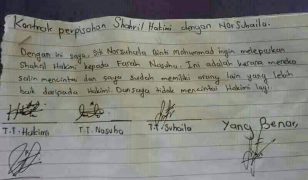 Kontrak perpisahan Shahril Hakimi dengan Nor Suhaila.
Dengan ini saya, Siti Norsuhaila Binti Mohammad ingin melepaskan
Shahril Hakimi kepada Farah Nasuha. Ini adalah kerana mereka
saling mencintai dan saya sudah memiliki orang lain yang lebih
baik daripada Hakimi. Dan saya tidak mencintai Hakimi lagi.
T.T. Hakimi T.T. Nasuha T.T. Suhaila Yang Benar,